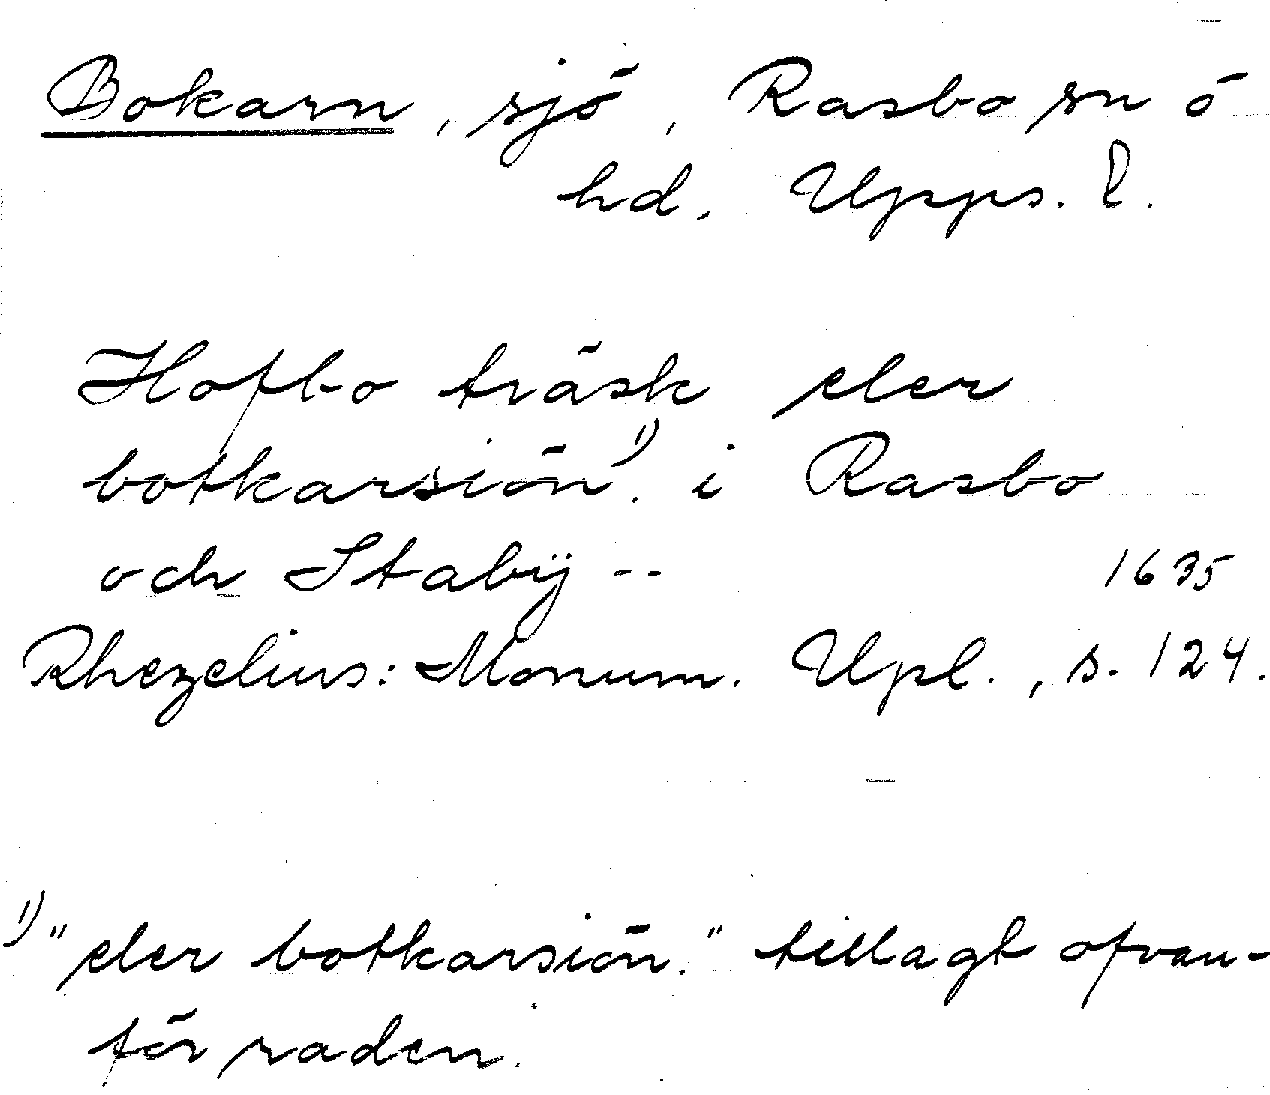 Bokarn, sjö, Rasbo sn o
hd. Upps. l.
Hofbo träsk eler
botkarsiön.¹⁾ i Rasbo
och Stabÿ -- 1635
Rhezelius: Monum. Upl., s. 124.
¹⁾ "eler botkarsiön." tillagt ofvan-
för raden.